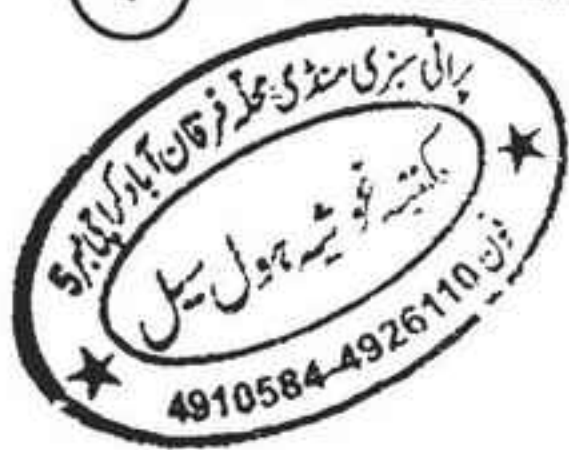 پرانی سبزی منڈی محلّہ فرقان آباد کراچی نمبر 5
مکتبہ غوثیہ ہول سیل
فون: 4910584-4926110